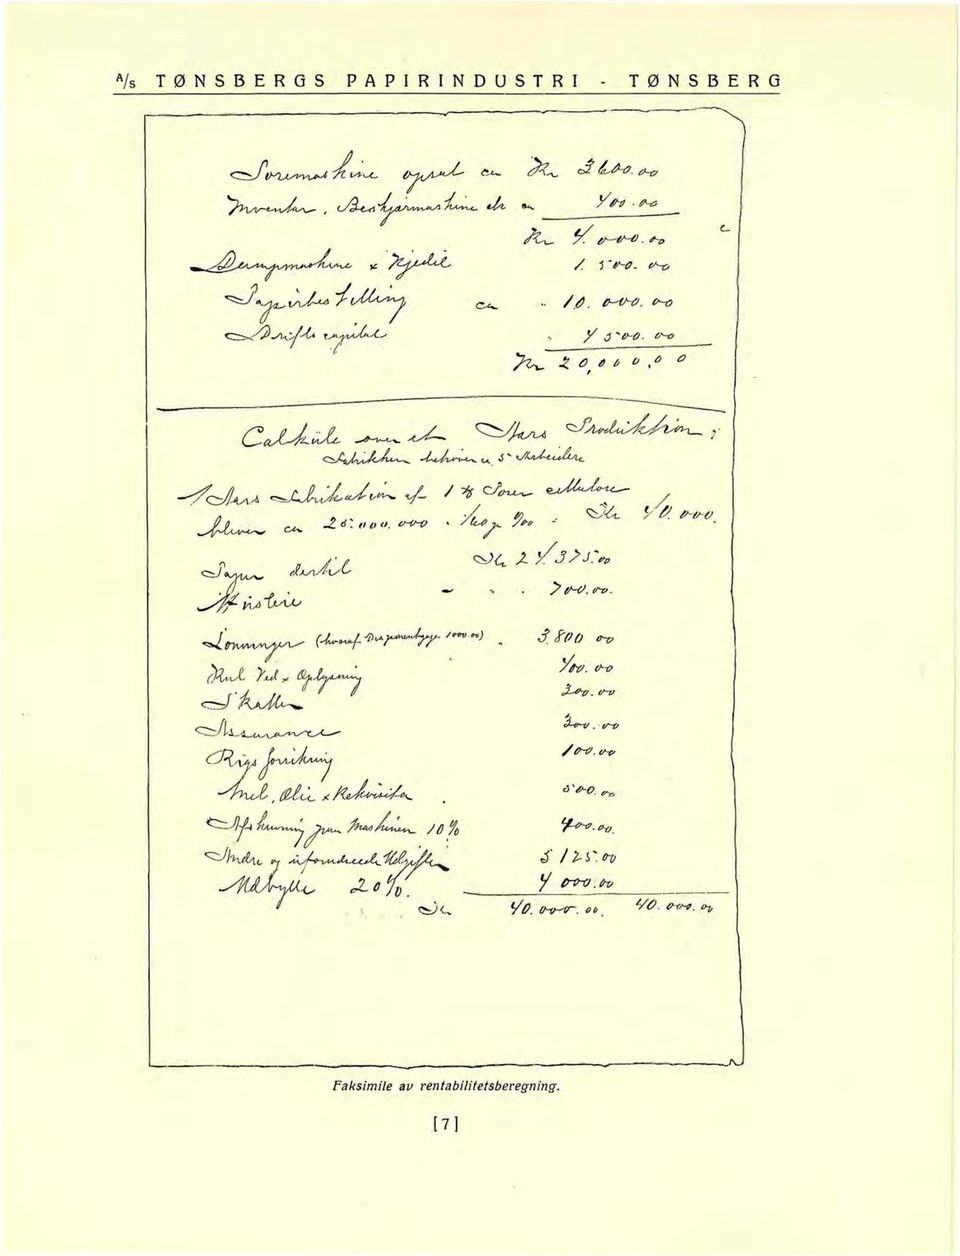 A/s TØNSBERGS PAPIRINDUSTRI - TØNSBERG
Posemaskine opsat ca Kr 3600.00
Inventar, Beskjærmaskine etc ca 400.00
Kr 4.000.00
Dampmaskine & Kjedil 1.500.00
Papirbestilling ca " 10.000.00
Drifts capital " 4500.00
Kr 20,000,00
Calküle over et Aars Produktion;
Fabrikken behøver ca 5 Arbeidere
1 Aars Fabrikation af 1 Poser cellulose
bliver ca 25.000.000 Kr 40.000.
Papir dertil Kr 24.375.00
Klisteré " " 700.00.
Lønninger (hvoraf 1000.00) " 3.800 00
Kul Ved & Oplysning 400.00
Skatter 300.00
Assurance 300.00
Rigsforsikring 100.00
Mel, Olie & Rekvisita 500.00
Afskrivning paa Maskinen 10% 400.00.
Andre og uforudseede Udgifter 5125.00
Udbytte 20%. 4000.00
Kr 40.000.00. 40.000.00
Faksimile av rentabilitetsberegning.
[7]